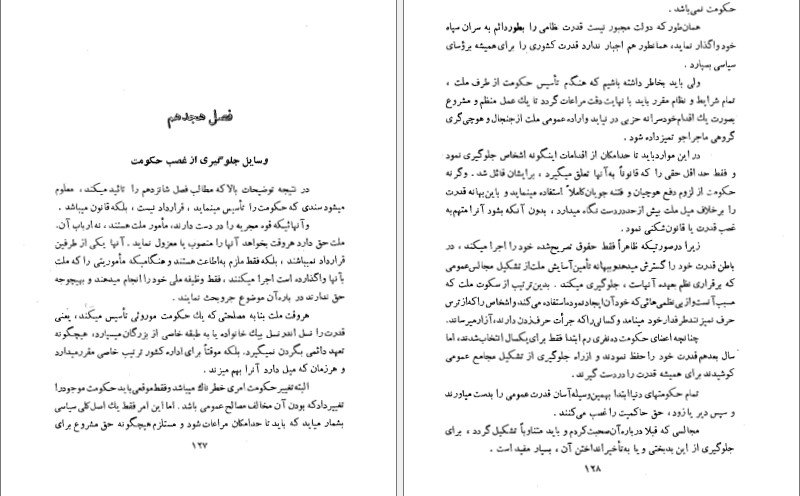 فصل هجدهم
وسایل جلوگیری از غصب حکومت
در نتیجه توضیحات بالا که مطالب فصل شانزدهم را تائید میکند، معلوم
میشود سندی که حکومت را تأسیس مینماید، قرارداد نیست، بلکه قانون میباشد.
و آنهائیکه قوه مجریه را در دست دارند، مأمور ملت هستند، نه ارباب آن.
ملت حق دارد هر وقت بخواهد آنها را منصوب یا معزول نماید. آنها یکی از طرفین
قرارداد نمیباشند، بلکه فقط ملزم به اطاعت هستند و هنگامیکه مأموریتی را که ملت
بآنها واگذارده است اجرا میکنند، فقط وظیفه ملی خود را انجام میدهند و بهیچوجه
حق ندارند در باره آن موضوع جر و بحث نمایند.
هر وقت ملت بنا به مصلحتی که یك حکومت موروثی تأسیس میکند، یعنی
قدرت را نسل اندر نسل بیك خانواده یا به طبقه خاصی از بزرگان میسپارد، هیچگونه
تعهد دائمی بگردن نمیگیرد. بلکه موقتاً برای اداره کشور ترتیب خاصی مقرر میدارد
و هر زمان که میل دارد آنرا بهم میزند.
البته تغییر حکومت امری خطرناك میباشد و فقط موقعی باید حکومت موجود را
تغییر داد که بودن آن مخالف مصالح عمومی باشد. اما این امر فقط یك اصل کلی سیاسی
بشمار میاید که باید تا حد امکان مراعات شود و مستلزم هیچگونه حق مشروع برای
۱۲۷
حکومت نمی‌باشد.
همان‌طور که دولت مجبور نیست قدرت نظامی را بطور دائم به سران سپاه
خود واگذار نماید، همانطور هم اجبار ندارد قدرت کشوری را برای همیشه برؤسای
سیاسی بسپارد.
ولی باید بخاطر داشته باشیم که هنگام تأسیس حکومت از طرف ملت،
تمام شرایط و نظام مقرر باید با نهایت دقت مراعات گردد تا یك عمل منظم و مشروع
بصورت یك اقدام خودسرانه حزبی در نیاید و اراده عمومی ملت از جنجال و هوچی‌گری
گروهی ماجراجو تمیز داده شود.
در این موارد باید تا حد امکان از اقدامات اینگونه اشخاص جلوگیری نمود
و فقط حد اقل حقی را که قانوناً به آنها تعلق میگیرد، برایشان قائل شد. و گرنه
حکومت از لزوم دفع هوچیان و فتنه جویان کاملاً استفاده مینماید و باین بهانه قدرت
را برخلاف میل ملت بیش از حد در دست نگاه میدارد، بدون آنکه بشود آنرا متهم به
غصب قدرت یا قانون‌شکنی نمود.
زیرا درصورتیکه ظاهراً فقط حقوق تصریح‌شده خود را اجرا میکند، در
باطن قدرت خود را گسترش میدهد و ببهانه تأمین آسایش ملت از تشکیل مجالس عمومی
که برقراری نظم بعهده آنهاست، جلوگیری میکند. بدین‌ترتیب از سکوت ملت که
مسبب آنست و از بی نظمی‌هائی که خود آن ایجاد نموده استفاده می‌کند و اشخاص را که از ترس
حرف نمیزنند طرفدار خود مینامد و کسانی را که جرأت حرف‌زدن دارند، آزار میرساند.
چنانچه اعضای حکومت ده نفری رم ابتدا فقط برای یکسال انتخاب شدند، اما
سال بعد هم قدرت خود را حفظ نمودند و از راه جلوگیری از تشکیل مجامع عمومی
کوشیدند برای همیشه قدرت را در دست گیرند.
تمام حکومتهای دنیا ابتدا بهمین وسیله آسان قدرت عمومی را بدست میاورند
و سپس دیر یا زود، حق حاکمیت را غصب می‌کنند.
مجالسی که قبلا درباره آن صحبت کردم و باید متناوباً تشکیل گردد، برای
جلوگیری از این بدبختی و یا به تأخیر انداختن آن، بسیار مفید است.
۱۲۸